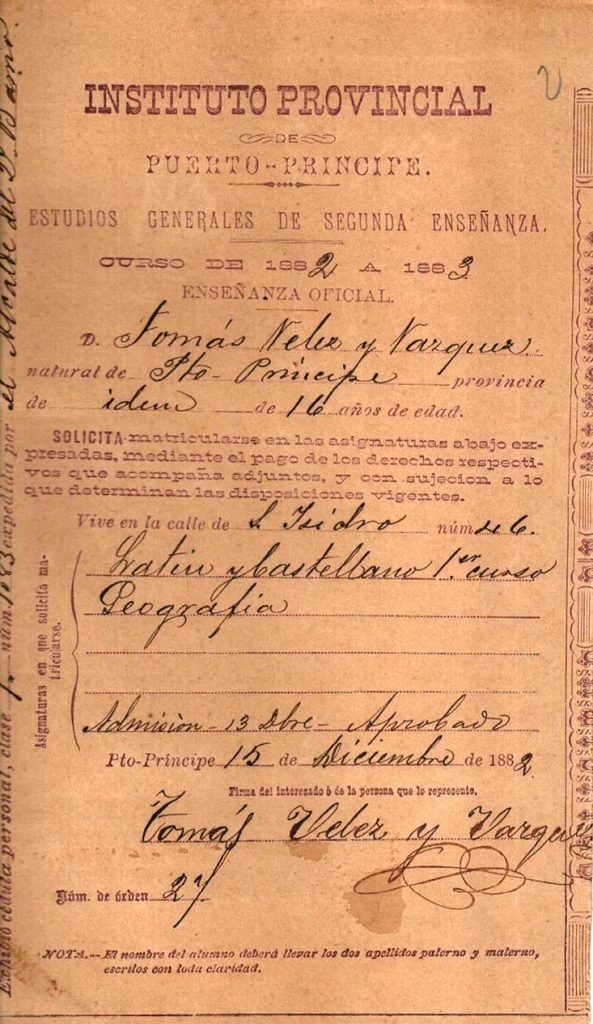 2
INSTITUTO PROVINCIAL
DE
PUERTO-PRINCIPE.
ESTUDIOS GENERALES DE SEGUNDA ENSEÑANZA.
CURSO DE 1882 A 1883
ENSEÑANZA OFICIAL.
D. Tomás Velez y Vazquez.
natural de Pto-Príncipe provincia
de idem de 16 años de edad.
SOLICITA matricularse en las asignaturas abajo ex-
presadas, mediante el pago de los derechos respecti-
vos que acompaña adjuntos, y con sujecion a lo
que determinan las disposiciones vigentes.
Vive en la calle de S. Isidro núm. 6.
Asignaturas en que solicita ma-
tricularse.
Latin y Castellano 1.er curso
Geografia
Admision - 13 Dbre - Aprobado
Pto-Príncipe 15 de Diciembre de 1882
Firma del interesado ó de la persona que lo represente.
Tomás Velez y Vazquez
Núm. de órden 27
NOTA.--El nombre del alumno deberá llevar los dos apellidos paterno y materno,
escritos con toda claridad.
Exhibió cédula personal, clase núm. expedida por el Alcalde del